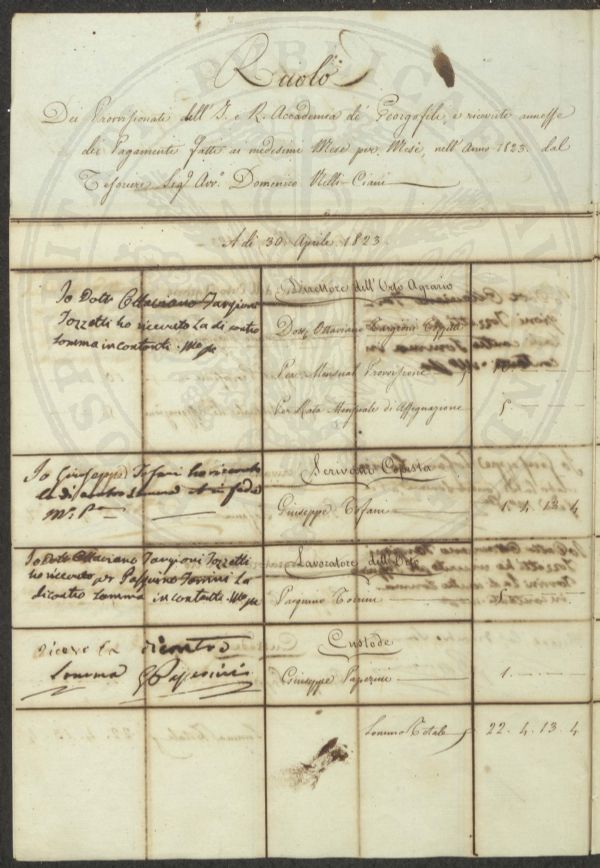 Ruolo
Dei Provisionati dell' I. e R. Accademia de' Georgofili, e ricevute annesse
dei Pagamenti fatti ai medesimi Mese per Mese, nell' Anno 1823. dal
Tesoriere Sigr. Avv. Domenico Nelli-Ciani
A dì 30 Aprile 1823
Io Dott Ottaviano Targioni
Tozzetti ho ricevuto la di contro
somma in contanti. Mo pa
Direttore dell' Orto Agrario
Dott. Ottaviano Targioni Tozzetti
Per Mensual Provisione
Per Rata Mensuale di Assegnazione 5.
Io Giuseppe Tofani ho ricevuto
la di contro somma
Mo Pa
Scrivano Copista
Giuseppe Tofani 4. 13. 4
Io Dott Ottaviano Targioni Tozzetti
ho ricevuto per Pasquino Tonini la
di contro somma in contanti. Mo pa
Lavoratore dell' Orto
Pasquino Tonini
ricevo la di contro
somma G Paperini
Custode
Giuseppe Paperini 1.
Somma Totale 22. 4. 13. 4